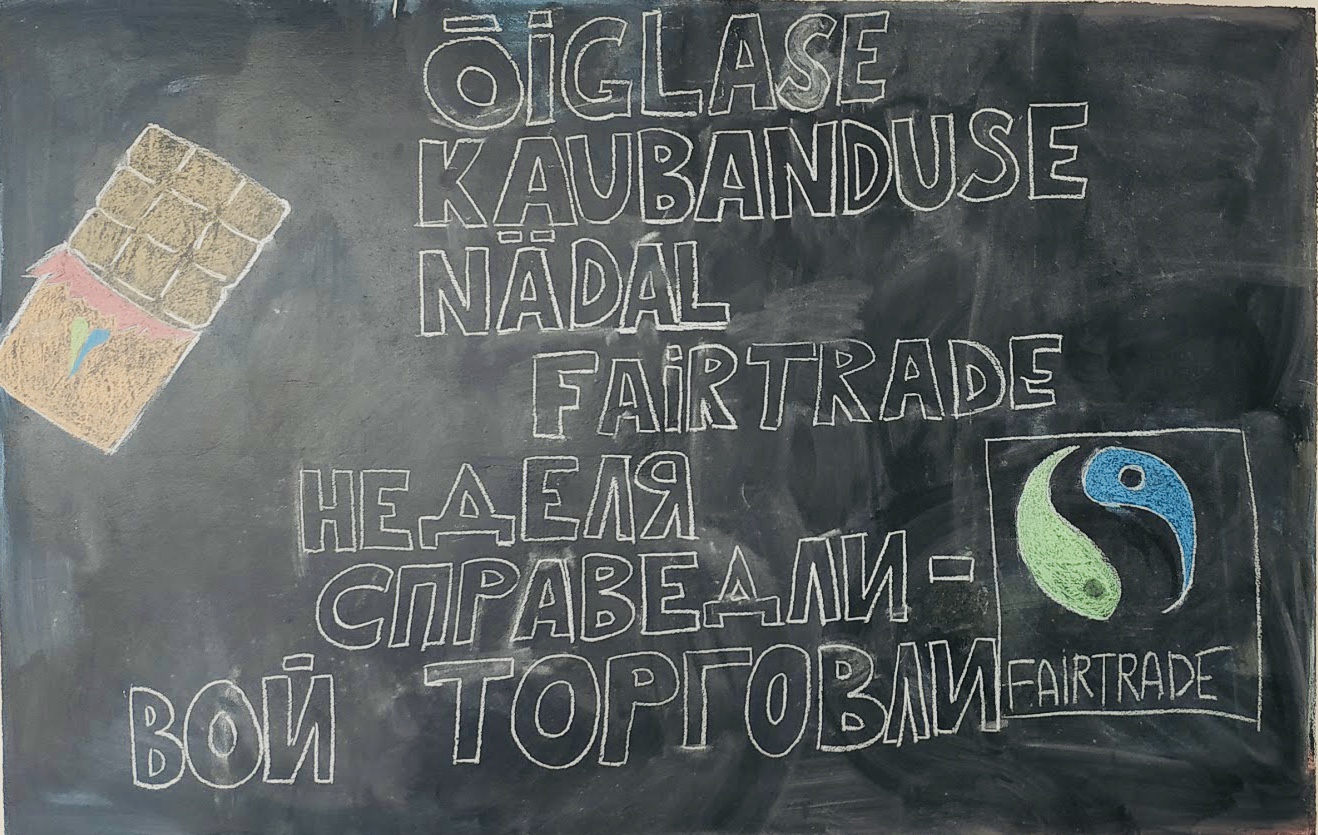 ÕIGLASE
KAUBANDUSE
NÄDAL
FAIRTRADE
НЕДЕЛЯ
СПРАВЕДЛИ-
ВОЙ ТОРГОВЛИ
FAIRTRADE